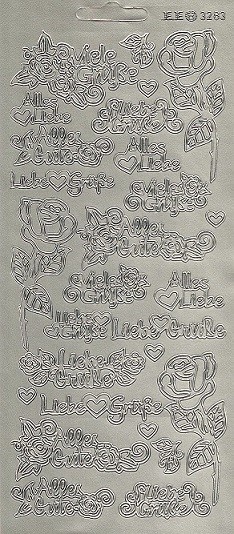 JEJE 3283
Viele
Grüße
Alles
Liebe
Liebe
Grüße
Alles
Gute
Alles
Liebe
Liebe Grüße
Viele
Grüße
Alles
Gute
Viele
Grüße
Alles
Liebe
Liebe
Grüße
Liebe Grüße
Liebe
Grüße
Liebe Grüße
Alles
Gute
Alles
Gute
Liebe
Grüße